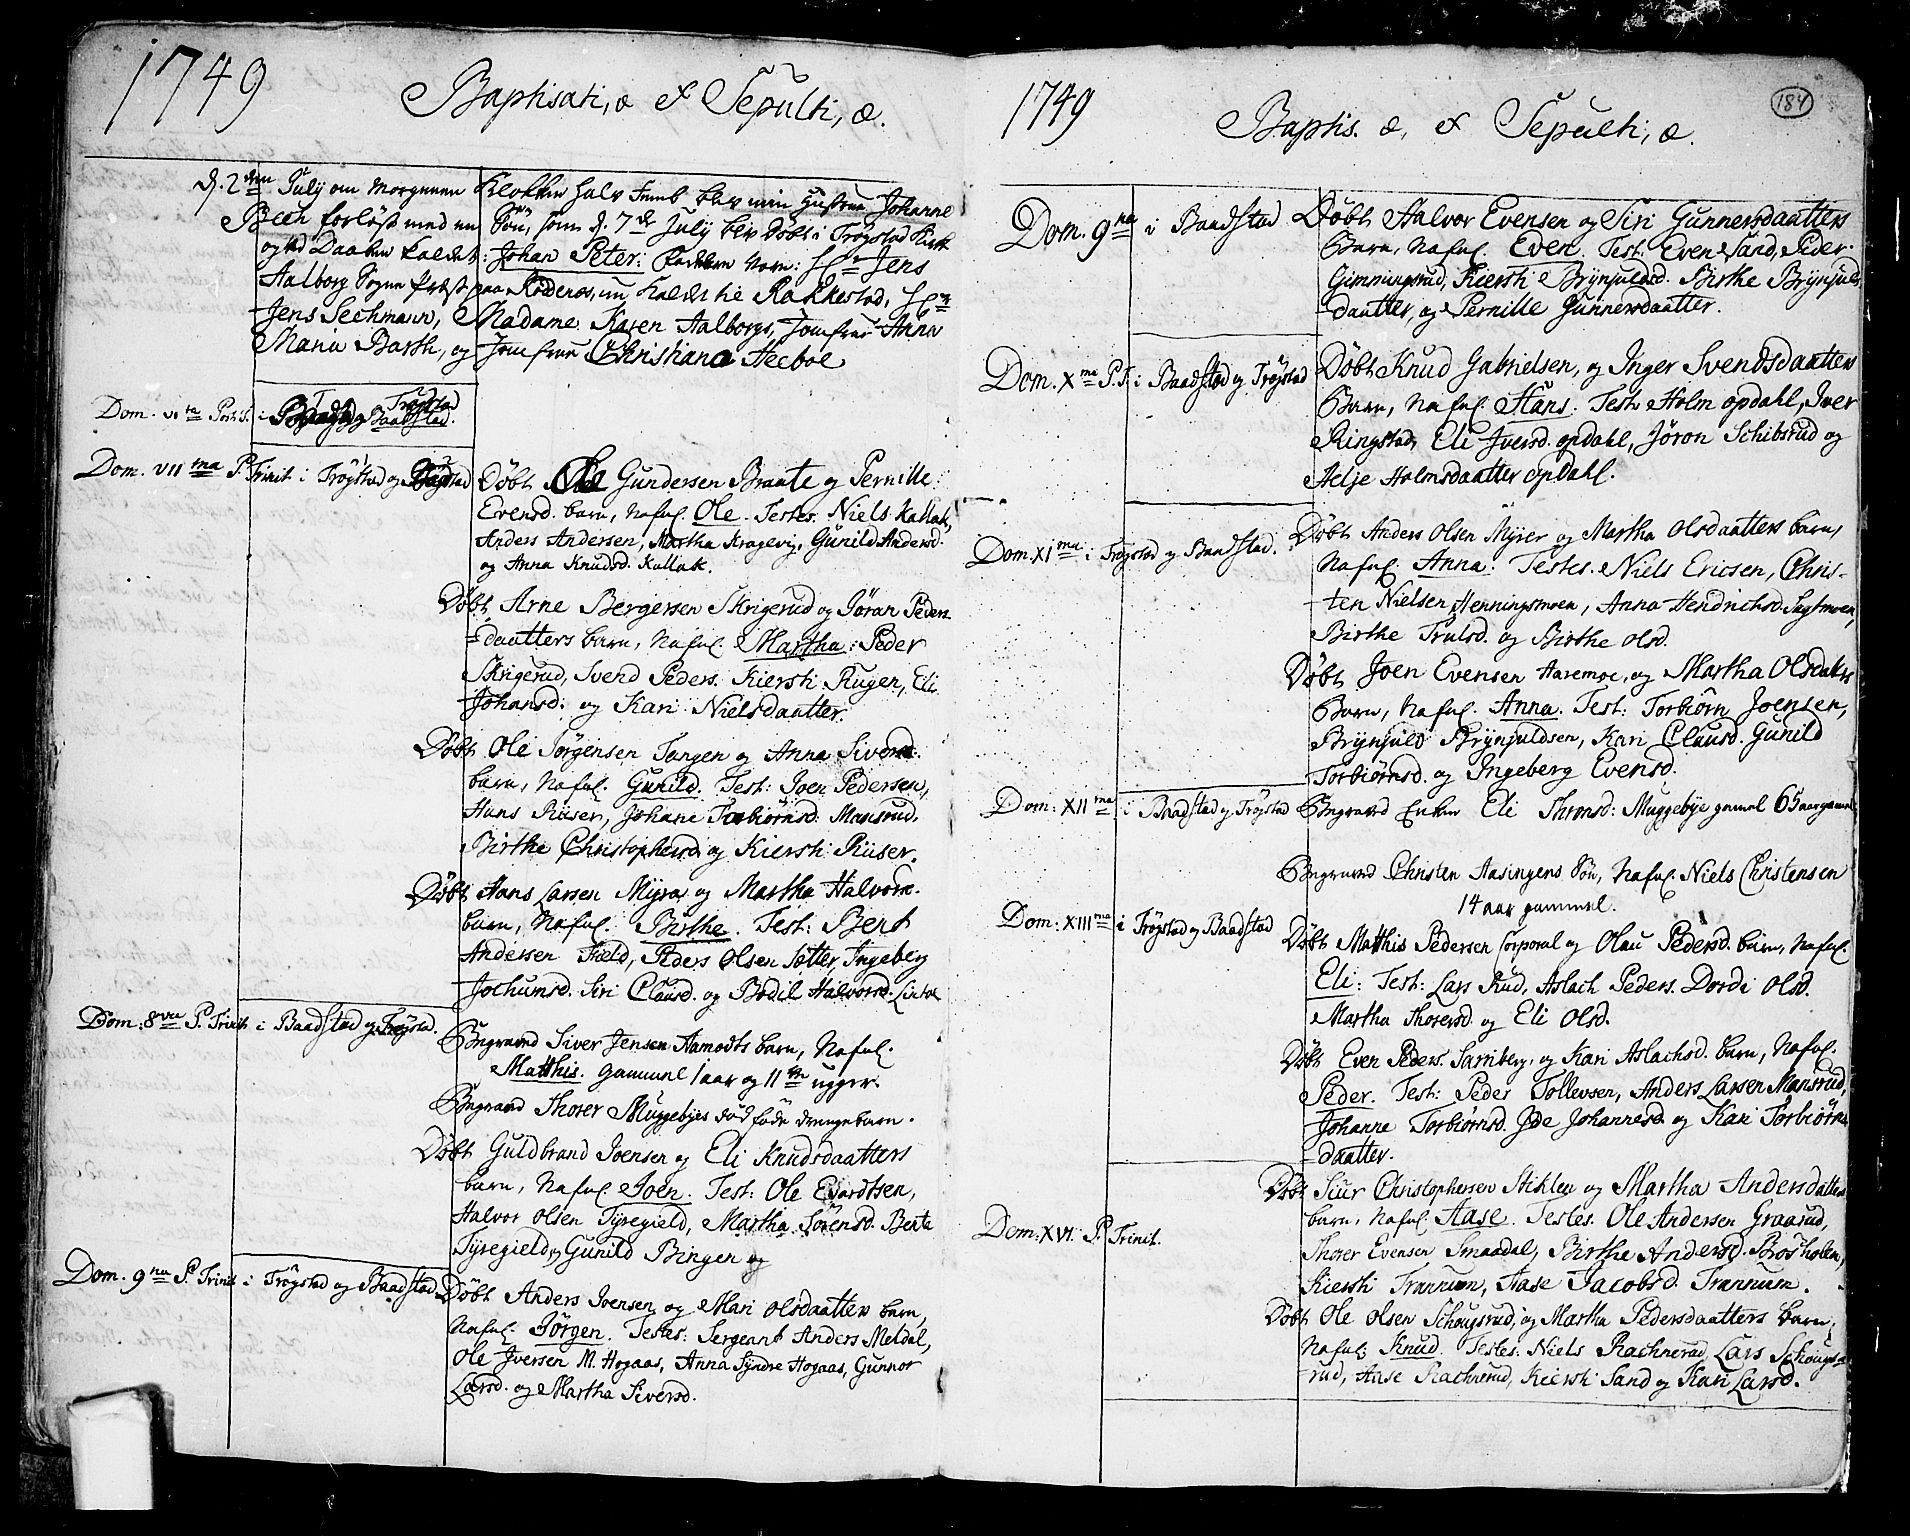 1749
Baptisati, æ et Sepulti, æ.
d. 2den July om Morgenen Klokken halv Femb blev min Hustrue Johanne
Bech forløst med en Søn, som d. 7de July blev døbt i Trøgstad Kirk
og ved Daaben kaldet: Johan Peter: Fadderne vare: Hr Jens
Aalborg Sogne Præst paa Rødenæs, nu kaldet til Rakkestad, Hr
Jens Sechmann, Madame Karen Aalborgs, Jomfrue Anna
Maria Barth, og Jomfrue Christiana Heeboe
Dom. VIta Post T. i Trøgstad og Baadstad.
Dom. VIIma P. Trinit i Trøgstad og Baadstad
Døbt Ole Gundersen Braate og Pernille
Evensd. barn, Nafnl. Ole. Testes. Niels Kallak,
Anders Andersen, Martha Kragevig, Gunild Andersd.
og Anna Knudsd. Kallak.
Døbt Arne Bergersen Skrigerud og Jøran Peders
=daatters barn, Nafnl. Martha: Peder
Skrigerud, Svend Peders. Kiersti Rugen, Eli
Johansd: og Kari Nielsdaatter.
Døbt Ole Jørgensen Tangen og Anna Siversd:
barn, Nafnl. Gunild. Test: Joen Pedersen,
Hans Riiser, Johane Torbiørnsd: Mansrud,
Birthe Christophersd. og Kiersti Riiser.
Døbt Hans Larsen Myra og Martha Halvorsd.
barn, Nafnl. Birthe. Test: Bent
Andersen Hæld, Peders Olsen Sætter, Ingeberg
Jochumsd. Siri Clausd. og Bodil Halvorsd.
Dom: 8va P. Trinit i Baadstad og Trøgstad.
Begraved Siver Jensen Aamodts barn, Nafnl.
Matthis. gammel 1 aar og 11 ugger.
Begraved Thorer Muggebyes død føde drengebarn.
Døbt Guldbrand Joensen og Eli Knudsdaatters
barn, Nafnl. Joen. Test: Ole Evardtsen,
Halvor Olsen Tyregield, Martha Sørensd. Berte
Tyregield, Gunild Bingen og
Dom. 9na P. Trinit i Trøgstad og Baadstad
Døbt Anders Joensen og Mari Olsdaatters barn,
Nafnl. Jørgen. Testes: Sergeant Anders Meldal,
Ole Iversen M. Hogaas, Anna Syndre Hogaas, Gunnor
Larsd. og Martha Siversd.
1749
184
Baptis. æ, et Sepulti, æ.
Dom. 9na i Baadstad
Døbt Halvor Evensen og Siri Gunnersdaatters
Barn, Nafnl. Even. Test: Even Sand, Peder
Gimmingsrud, Kiersti Brynjulds. Birthe Brynjuls
daatter, og Pernille Gunnersdaatter.
Dom. Xma P.T. i Baadstad og Trøgstad
Døbt Knud Gabrielsen, og Inger Svendsdaatters
Barn, Nafnl. Hans. Test: Holm opdahl, Iver
Ringstad, Eli Iversd. opdahl, Jøron Schibsrud og
Helje Holmsdaatter opdahl.
Dom. XIma i Trøgstad og Baadstad.
Døbt Anders Olsen Myrer og Martha Olsdaatters barn,
Nafnl. Anna. Testes. Niels Ericsen, Chris-
-ten Nielsen Henningsmoen, Anna Hendrichsd. Sagtmoen,
Birthe Trulsd. og Birthe Olsd.
Døbt Joen Evensen Haremoe, og Martha Olsdatters
Barn, Nafnl. Anna. Test: Torbiørn Joensen,
Brynjuld Brynjuldsen, Kari Clausd. Gunild
Torbiørnsd. og Ingeberg Evensd.
Dom: XIIma i Baadstad og Trøgstad
Begraved Enken Eli Thronsd: Muggebye gamel 65 aar gamel
Begraved Christen Aasingens Søn, Nafnl. Niels Christensen
14 aar gammel.
Dom: XIIIma i Trøgstad og Baadstad
Døbt Matthis Pedersen Corporal og Olau Pedersd. barn, Nafnl.
Eli: Test: Lars Rud, Aslach Peders. Dordi Olsd.
Martha Thorersd. og Eli Olsd.
Døbt Even Peders. Sarnberg. og Kari Aslachsd. barn, Nafnl.
Peder. Test: Peder Tollevsen, Anders Larsen Mansrud,
Johanne Torbiørnsd. Ide Johannesd. og Kari Torbiørns
=daatter.
Dom: XVI. P. Trinit.
Døbt Siur Christophersen Stiklen og Martha Andersdatters
barn, Nafnl. Aase. Testes. Ole Andersen Graarud,
Thorer Evensen Smaadal, Birthe Andersd. Brosholen,
Kiersti Trannum, Aase Jacobsd. Trannum.
Døbt Ole Olsen Schougsrud, og Martha Pedersdaatters barn,
Nafnl. Knud. Testes. Niels Rachnerud, Lars Schougs=
-rud, Aase Rachnerud, Kiersti Sand og Kari Larsd.